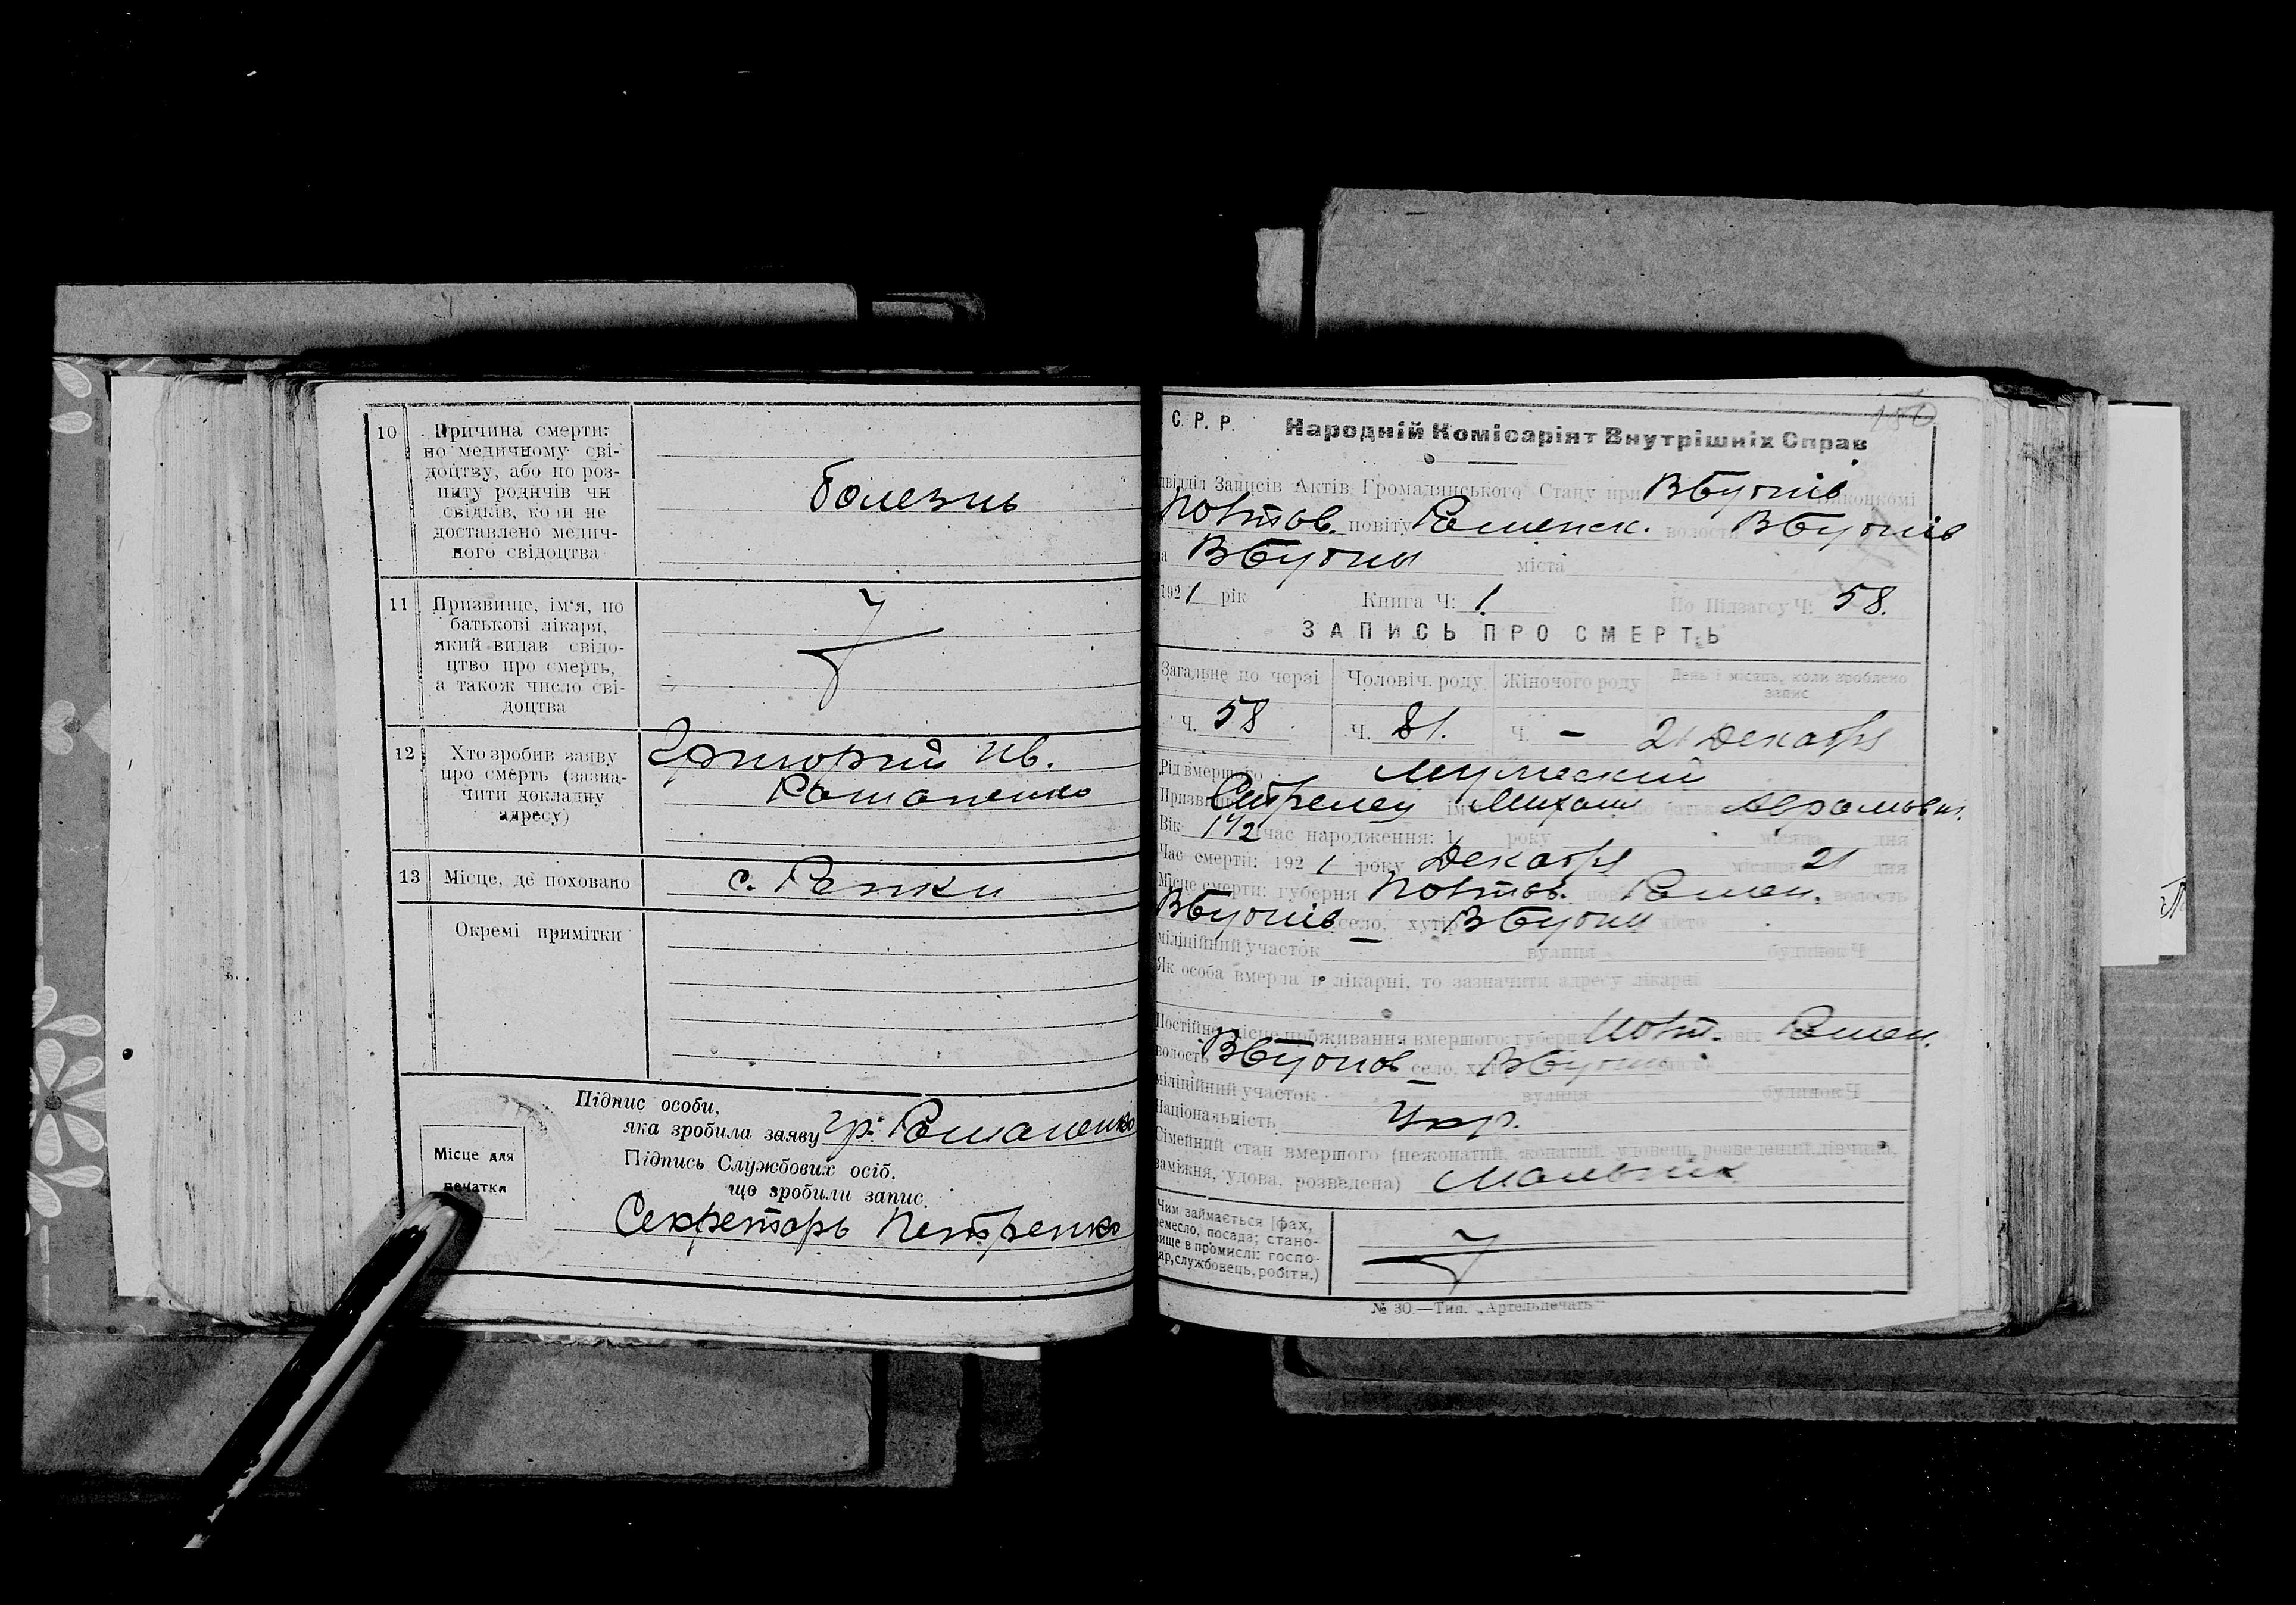 10 Причина смерти:
по медичному сві-
доцтву, або по роз-
питу родичів чи
свідків, коли не
доставлено медич-
ного свідоцтва
болезнь
11 Призвище, ім'я, по
батькові лікаря,
який видав свідо-
цтво про смерть,
а також число сві-
доцтва
12 Хто зробив заяву
про смерть (зазна-
чити докладну
адресу)
Григорий Ив.
Романенко
13 Місце, де поховано
с.
Окремі примітки
Підпис особи,
яка зробила заяву гр. Романенко
Підпись Службових осіб.
що зробили запис.
Місце для
печатки
Секретарь Петренко
С. Р. Р.
Народній Комісаріят Внутрішніх Справ
Записів Актів Громадянського Стану при
повіту волости
міста
1921 рік Книга Ч: 1. По Підзагсу Ч: 58.
ЗАПИСЬ ПРО СМЕРТЬ
Загальне по черзі Чоловіч. роду Жіночого роду День і місяць, коли зроблено
запис
Ч. 58 Ч. Ч. – 21 Декабря
Рід вмершого Мужеский
Стрелец Михаил Аврамович
Вік 1 1/2 час народження: 1 року місяця дня
Час смерти: 1921 року Декабря місяця 21 дня
Місце смерти: губерня Ромен. волость
село, хутір місто
міліційний участок вулиця будинок Ч
Як особа вмерла в лікарні, то зазначити адресу лікарні
Постійне місце проживання вмершого: губерня Полт. Ромен.
волость село,
міліційний участок вулиця будинок Ч
Національність Укр.
Сімейний стан вмершого (нежонатий, жонатий, удовець, розведений, дівчина,
заміжня, удова, розведена) Мальчик
Чим займається [фах,
ремесло, посада; стано-
вище в промислі: госпо-
дар, службовець, робітн.)
№ 30.—Тип. „Артельпечать"